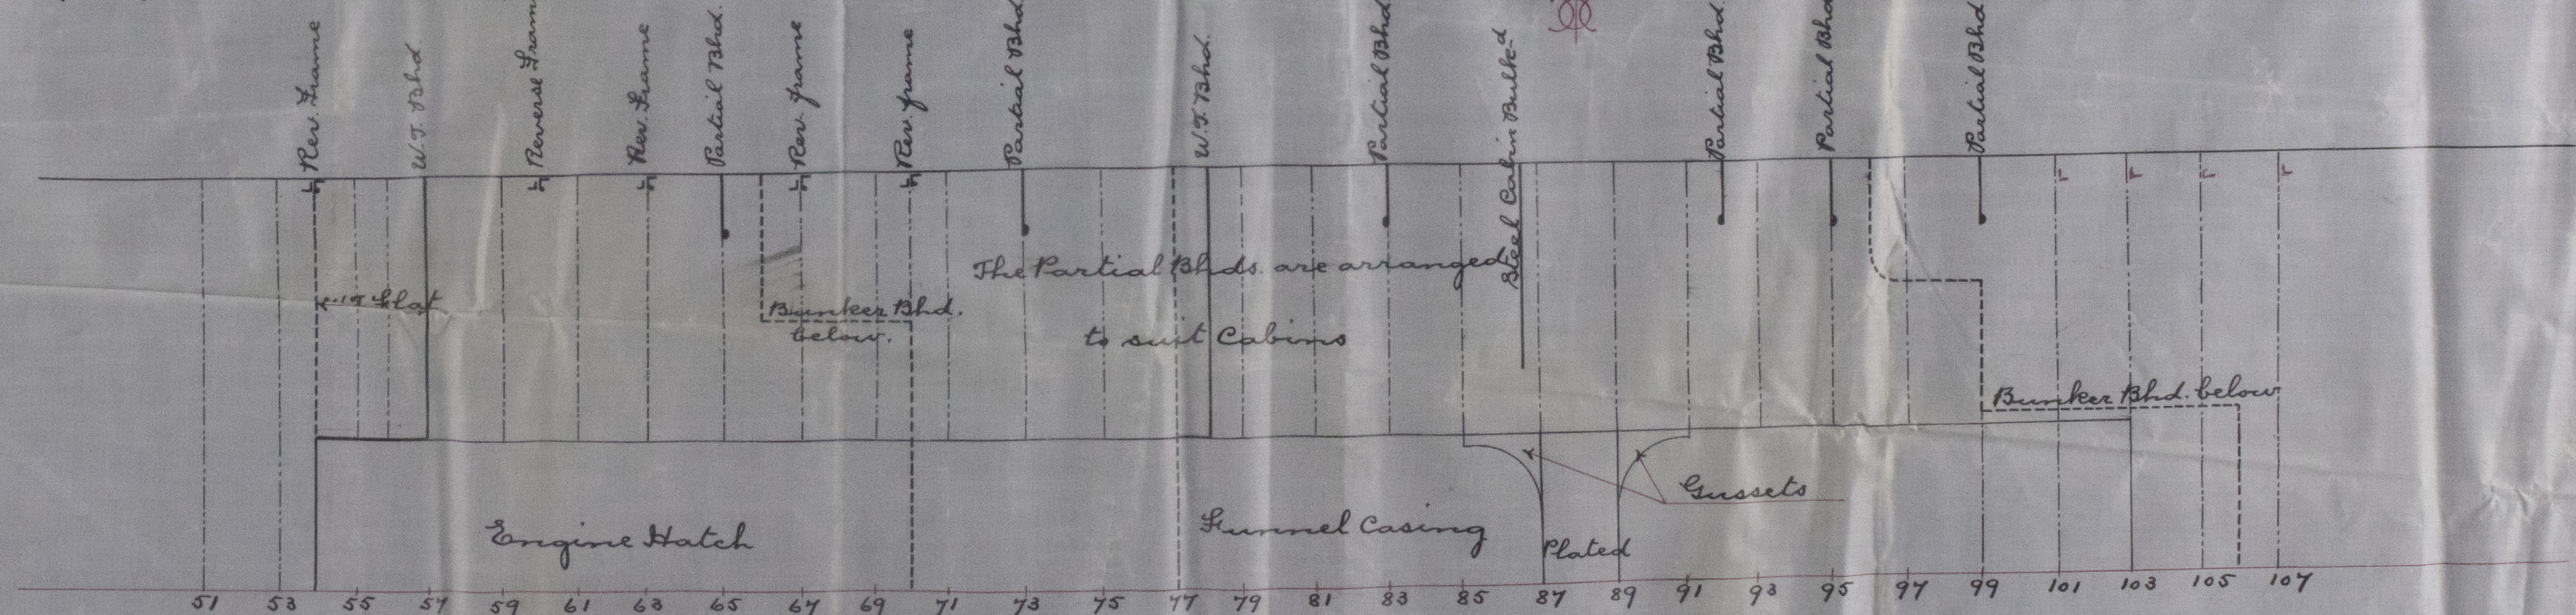 Rev. Frame
W.T. Bhd.
Reverse Fram
Rev. Frame
Partial Bhd.
Rev. frame
Rev. frame
Partial Bhd
W.T. Bhd.
Partial Bhd
Steel Cabin Bulk-d
Partial Bhd.
Partial Bhd
Partial Bhd
The Partial Bhds. are arranged
to suit Cabins
flat
Bunker Bhd.
below.
Bunker Bhd. below
Gussets
Engine Hatch
Funnel Casing
Plated
51 53 55 57 59 61 63 65 67 69 71 73 75 77 79 81 83 85 87 89 91 93 95 97 99 101 103 105 107